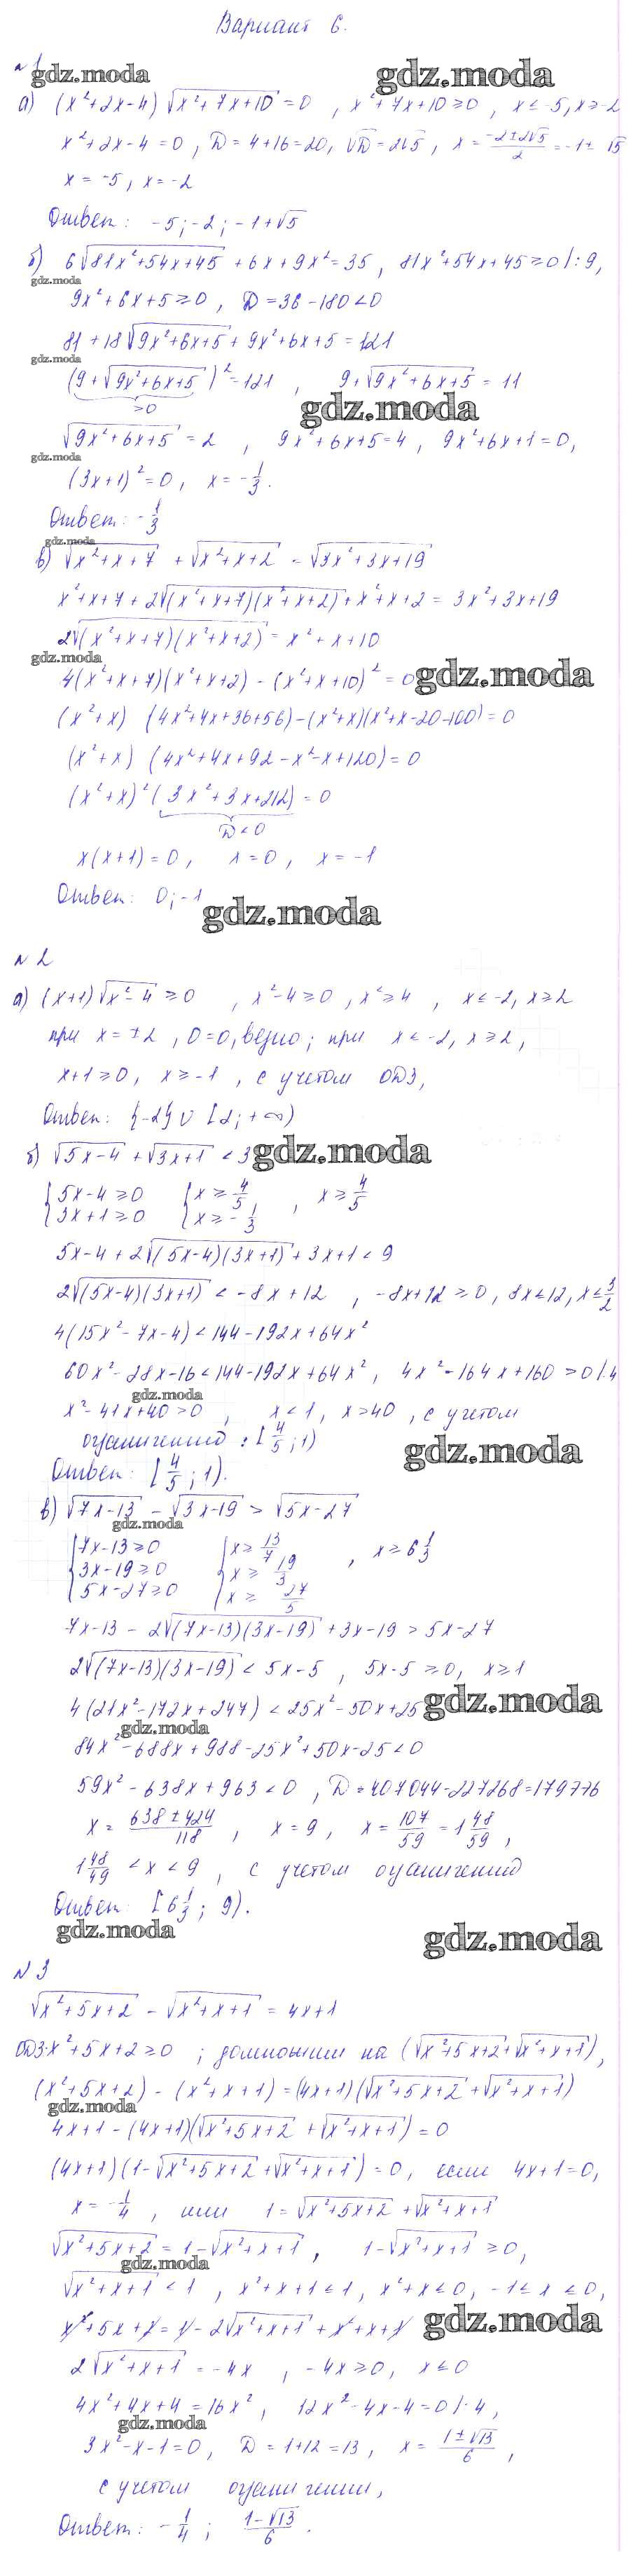 Вариант 6.
№1
gdz.moda gdz.moda
а) (x²+2x-4)√(x²+7x+10)=0 , x²+7x+10≥0, x≤-5, x≥-2
x²+2x-4=0, D=4+16=20, √D=2√5, x=(-2±2√5)/2=-1±√5
x=-5, x=-2
Ответ: -5; -2; -1+√5
б) 6√(81x²+54x+45)+6x+9x²=35, 81x²+54x+45≥0 |:9,
gdz.moda
9x²+6x+5≥0, D=36-180<0
81+18√(9x²+6x+5)+9x²+6x+5=121
gdz.moda
(9+√(9x²+6x+5))²=121 , 9+√(9x²+6x+5)=11
>0
gdz.moda
√(9x²+6x+5)=2 , 9x²+6x+5=4, 9x²+6x+1=0,
gdz.moda
(3x+1)²=0, x=-1/3.
Ответ: -1/3
gdz.moda
в) √(x²+x+7)+√(x²+x+2)=√(3x²+3x+19)
x²+x+7+2√((x²+x+7)(x²+x+2))+x²+x+2=3x²+3x+19
2√((x²+x+7)(x²+x+2))=x²+x+10
gdz.moda
4(x²+x+7)(x²+x+2)-(x²+x+10)²=0
gdz.moda
(x²+x)(4x²+4x+36+56)-(x²+x)(x²+x-20-100)=0
(x²+x)(4x²+4x+92-x²-x+120)=0
(x²+x)²(3x²+3x+212)=0
D<0
x(x+1)=0, x=0, x=-1
Ответ: 0; -1
gdz.moda
№2
а) (x+1)√(x²-4)≥0 , x²-4≥0, x²≥4 , x≤-2, x≥2
при x=±2, 0=0, верно; при x<-2, x≥2,
x+1≥0, x≥-1 , с учетом ОДЗ,
Ответ: {-2}∪[2;+∞)
б) √(5x-4)+√(3x+1)<3
gdz.moda
{5x-4≥0 {x≥4/5 , x≥4/5
{3x+1≥0 {x≥-1/3
5x-4+2√((5x-4)(3x+1))+3x+1<9
2√((5x-4)(3x+1))<-8x+12 , -8x+12≥0, 8x≤12, x≤3/2
4(15x²-7x-4)<144-192x+64x²
60x²-28x-16<144-192x+64x², 4x²-164x+160>0 |:4
gdz.moda
x²-41x+40>0 , x<1, x>40 , с учетом
ограничений: [4/5;1)
gdz.moda
Ответ: [4/5;1).
в) √(7x-13)-√(3x-19)>√(5x-27)
gdz.moda
{7x-13≥0 {x≥13/7 , x≥6 1/3
{3x-19≥0 {x≥19/3
{5x-27≥0 {x≥27/5
7x-13-2√((7x-13)(3x-19))+3x-19>5x-27
2√((7x-13)(3x-19))<5x-5 , 5x-5≥0, x≥1
4(21x²-172x+247)<25x²-50x+25
gdz.moda
gdz.moda
84x²-688x+988-25x²+50x-25<0
59x²-638x+963<0 , D=407044-227268=179776
x=(638±424)/118 , x=9, x=107/59=1 48/59,
1 48/49<x<9 , с учетом ограничений
Ответ: [6 1/3; 9).
gdz.moda gdz.moda
№3
√(x²+5x+2)-√(x²+x+1)=4x+1
ОДЗ: x²+5x+2≥0 ; домножим на (√(x²+5x+2)+√(x²+x+1)),
(x²+5x+2)-(x²+x+1)=(4x+1)(√(x²+5x+2)+√(x²+x+1))
gdz.moda
4x+1-(4x+1)(√(x²+5x+2)+√(x²+x+1))=0
(4x+1)(1-√(x²+5x+2)+√(x²+x+1))=0, если 4x+1=0,
x=-1/4 , или 1=√(x²+5x+2)+√(x²+x+1)
√(x²+5x+2)=1-√(x²+x+1) , 1-√(x²+x+1)≥0,
gdz.moda
√(x²+x+1)<1 , x²+x+1≤1, x²+x<0, -1≤x<0,
x²+5x+2=1-2√(x²+x+1)+x²+x+1
gdz.moda
2√(x²+x+1)=-4x , -4x≥0, x≤0
4x²+4x+4=16x², 12x²-4x-4=0 |:4,
gdz.moda
3x²-x-1=0, D=1+12=13, x=(1±√13)/6,
с учетом ограничений,
Ответ: -1/4; (1-√13)/6.